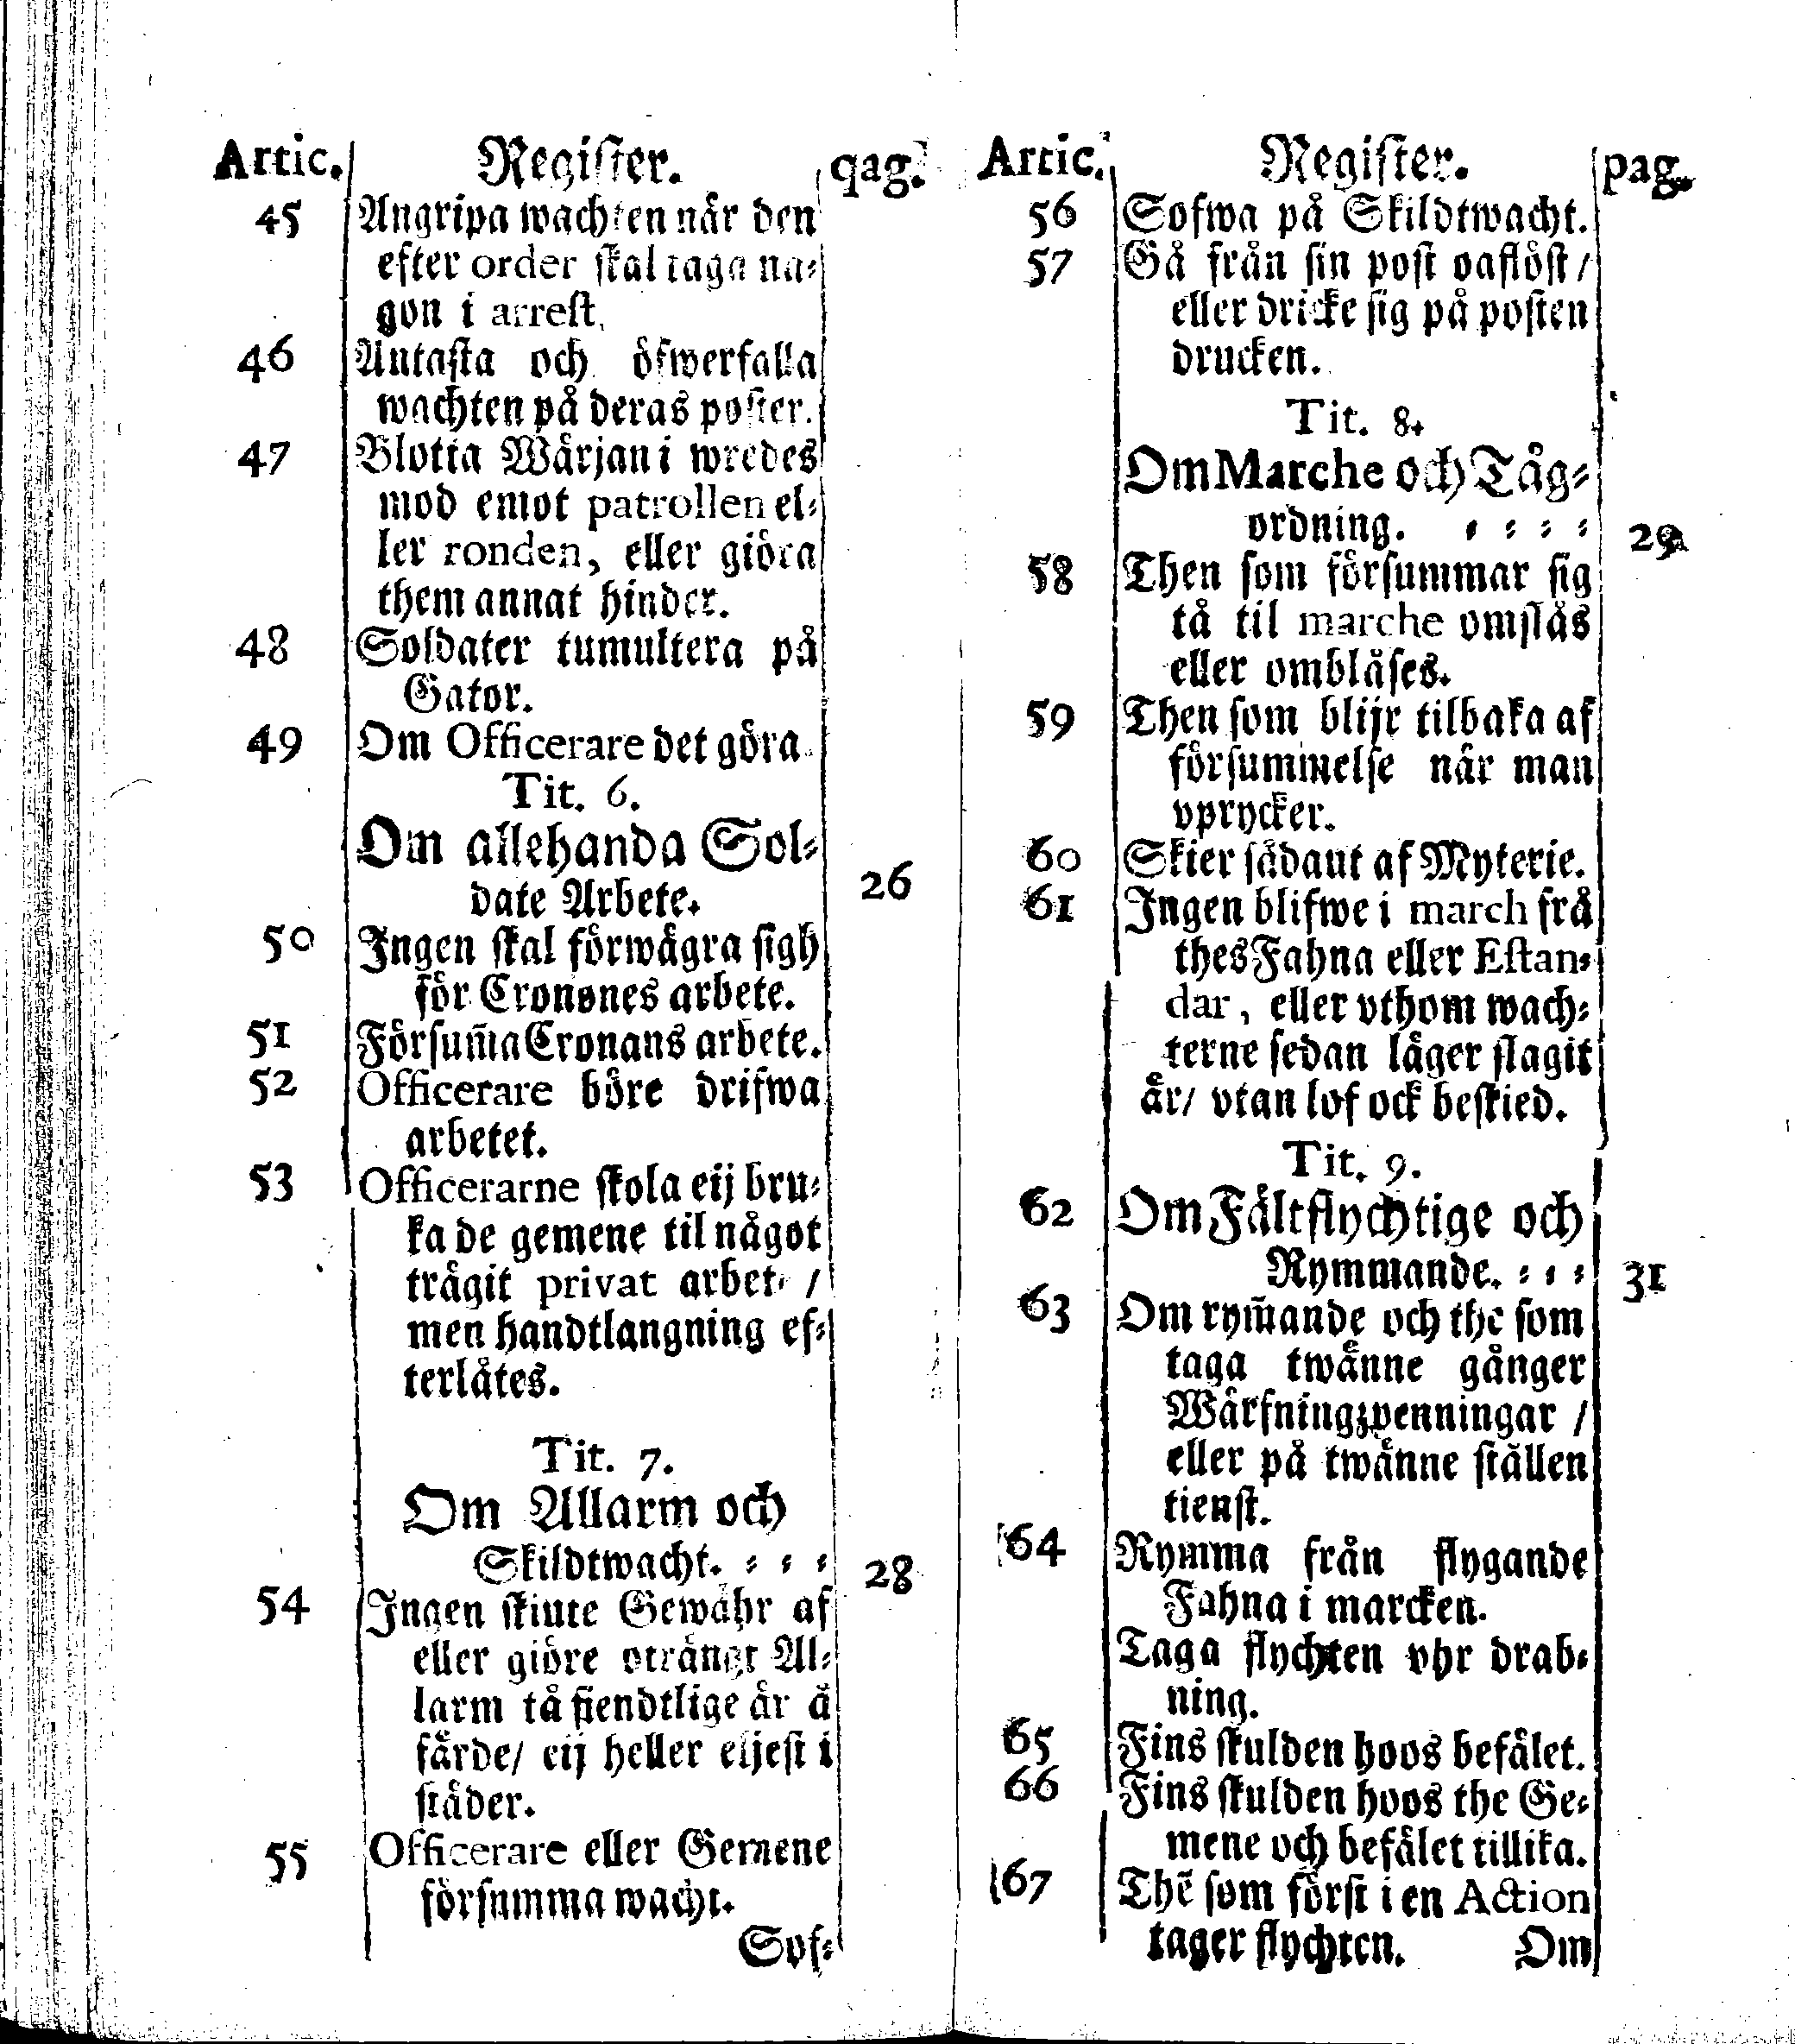 Artic. Register. qag.
45 Angripa wachten når den
efter order skal taga na-
gon i arrest.
46 Antasta och öfwerfalla
wachten på deras poster.
47 Blotta Wårjan i wredes
mod emot patrollen el-
ler ronden, eller giöra
them annat hinder.
48 Soldater tumultera på
Gator.
49 Om Officerare det göra.
Tit. 6.
Om allehanda Sol-
date Arbete. 26
50 Ingen skal förwägra sigh
för Cronones arbete.
51 Försum̃a Cronans arbete.
52 Officerare böre drifwa
arbetet.
53 Officerarne skola eij bru-
ka de gemene til något
trågit privat arbete /
men handtlangning ef-
terlåtes.
Tit. 7.
Om Allarm och
Skildtwacht. - - - 28
54 Ingen skiute Gewähr af
eller giöre oträngt Al-
larm tå fiendtlige är å
färde/ eij heller eljest i
städer.
55 Officerare eller Gemene
försumma wacht.
Sof-
Artic. Register. pag.
56 Sofwa på Skildtwacht.
57 Gå från sin post oaflöst /
eller dricke sig på posten
drucken.
Tit. 8.
Om Marche och Tåg-
ordning. - - - - 29
58 Then som försummar sig
tå til marche omslås
eller omblåses.
59 Then som blijr tilbaka af
försummelse når man
vprycker.
60 Skier sådant af Myterie.
61 Ingen blifwe i march frå
thes Fahna eller Estan-
dar, eller vthom wach-
terne sedan läger slagit
är/ vtan lof ock beskied.
Tit. 9.
62 Om Fältflychtige och
Rymmande. - - - 31
63 Om rym̃ande och the som
taga twänne gånger
Wärfningzpenningar /
eller på twänne ställen
tienst.
64 Rymma från flygande
Fahna i marcken.
Taga flychten vhr drab-
ning.
65 Fins skulden hoos befälet.
66 Fins skulden hoos the Ge-
mene och befälet tillika.
67 Thẽ som först i en Action
tager flychten. Om